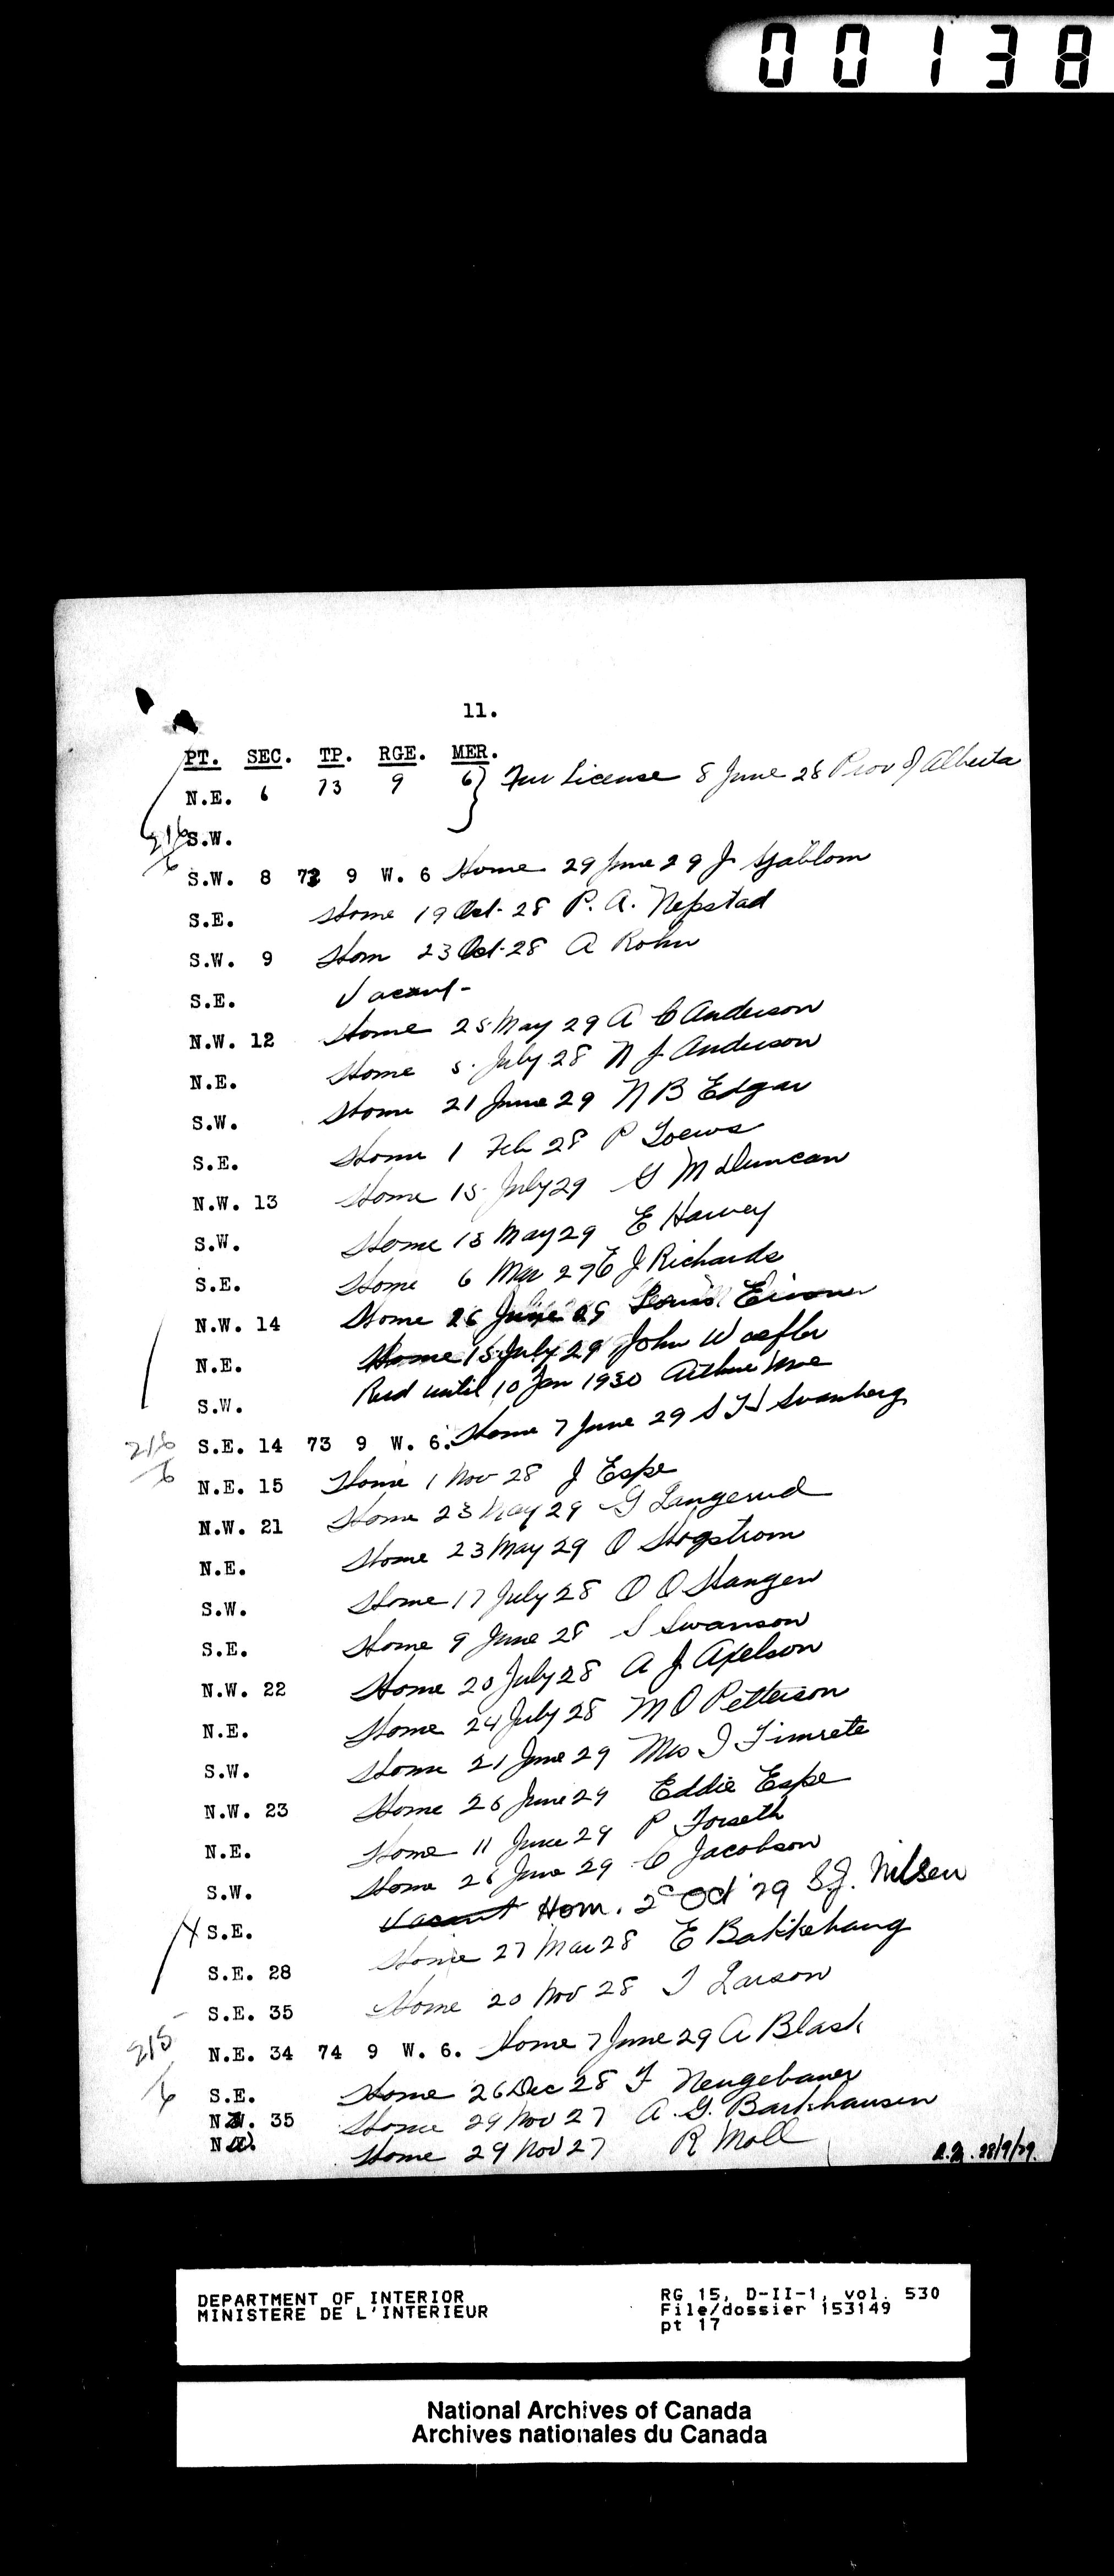 00138
11.
PT. SEC. TP. RGE. MER.
N.E. 6 73 9 6} Fur License 8 June 28 Prov of Alberta
216 S.W.
6
S.W. 8 73 9 W. 6 Home 29 June 29 J Sjablom
S.E. Home 19 Oct. 28 P. A. Nepstad
S.W. 9 Hom 23 Oct. 28 A Rohn
S.E. Vacant-
N.W. 12 Home 25 May 29 A C Anderson
N.E. Home 5 July 28 N J Anderson
S.W. Home 21 June 29 N B Edgar
S.E. Home 1 Feb 28 P Loews
N.W. 13 Home 15 July 29 G M Duncan
S.W. Home 15 May 29 E Harvey
S.E. Home 6 Mar 27 E J Richards
N.W. 14 Home 26 June 29 Louis
N.E. Home 15 July 29 John
S.W. until 10 Jan 1930 Arthur Moe
S.E. 14 73 9 W. 6. Home 7 June 29 S H Svanberg
216
6
N.E. 15 Home 1 Nov 28 J Espe
N.W. 21 Home 23 May 29 G Langerud
N.E. Home 23 May 29 O Hogstrom
S.W. Home 17 July 28 O O Hangen
S.E. Home 9 June 28 S Swanson
N.W. 22 Home 20 July 28 A J Axelson
N.E. Home 24 July 28 M O Petterson
S.W. Home 21 June 29 Mrs I Timrete
N.W. 23 Home 26 June 29 Eddie Espe
N.E. Home 11 June 29 P Forseth
S.W. Home 26 June 29 C Jacobson
S.E. Vacant Hom. 2 Oct 29 S.J. Nilsen
S.E. 28 Home 27 Mar 28 E Bakkehaug
S.E. 35 Home 20 Nov 28 I Larson
215
6
N.E. 34 74 9 W. 6. Home 7 June 29 A Blask
S.E. Home 26 Dec 28 F Neugebauer
N. 35 Home 29 Nov 27 A. G. Barkhausen
N Home 29 Nov 27 R Moll
28/9/29.
DEPARTMENT OF INTERIOR
MINISTERE DE L'INTERIEUR
RG 15, D-II-1, vol. 530
File/dossier 153149
pt 17
National Archives of Canada
Archives nationales du Canada